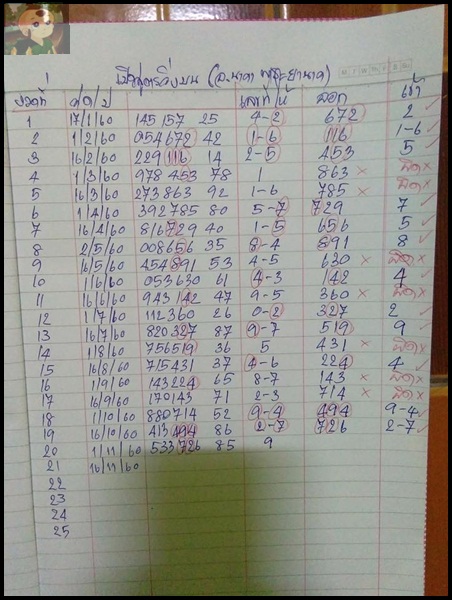 1
งวดที่ ว/ด/ป เลขที่ให้ ออก เข้า
1 17/1/60 145157 25 4-2 672 2 ✓
2 1/2/60 054672 42 1-6 116 1-6 ✓
3 16/2/60 229116 14 2-5 453 5 ✓
4 1/3/60 978453 78 1 863 × ผิด ×
5 16/3/60 273863 92 1-6 785 × ผิด ×
6 1/4/60 392785 80 5-7 729 7 ✓
7 16/4/60 816729 40 1-5 656 5 ✓
8 2/5/60 008656 35 8-4 891 8 ✓
9 16/5/60 454891 53 4-5 630 × ผิด ×
10 1/6/60 053630 61 4-3 142 4 ✓
11 16/6/60 943142 47 9-5 360 × ผิด ×
12 1/7/60 112360 26 0-2 327 2 ✓
13 16/7/60 820327 87 9-7 519 9 ✓
14 1/8/60 756519 36 5 431 × ผิด ×
15 16/8/60 715431 37 4-6 224 4 ✓
16 1/9/60 143224 65 8-7 143 × ผิด ×
17 16/9/60 170143 71 2-3 714 × ผิด ×
18 1/10/60 880714 52 9-4 494 9-4 ✓
19 16/10/60 413494 86 2-7 726 2-7 ✓
20 1/11/60 533726 85 9
21 16/11/60
22
23
24
25